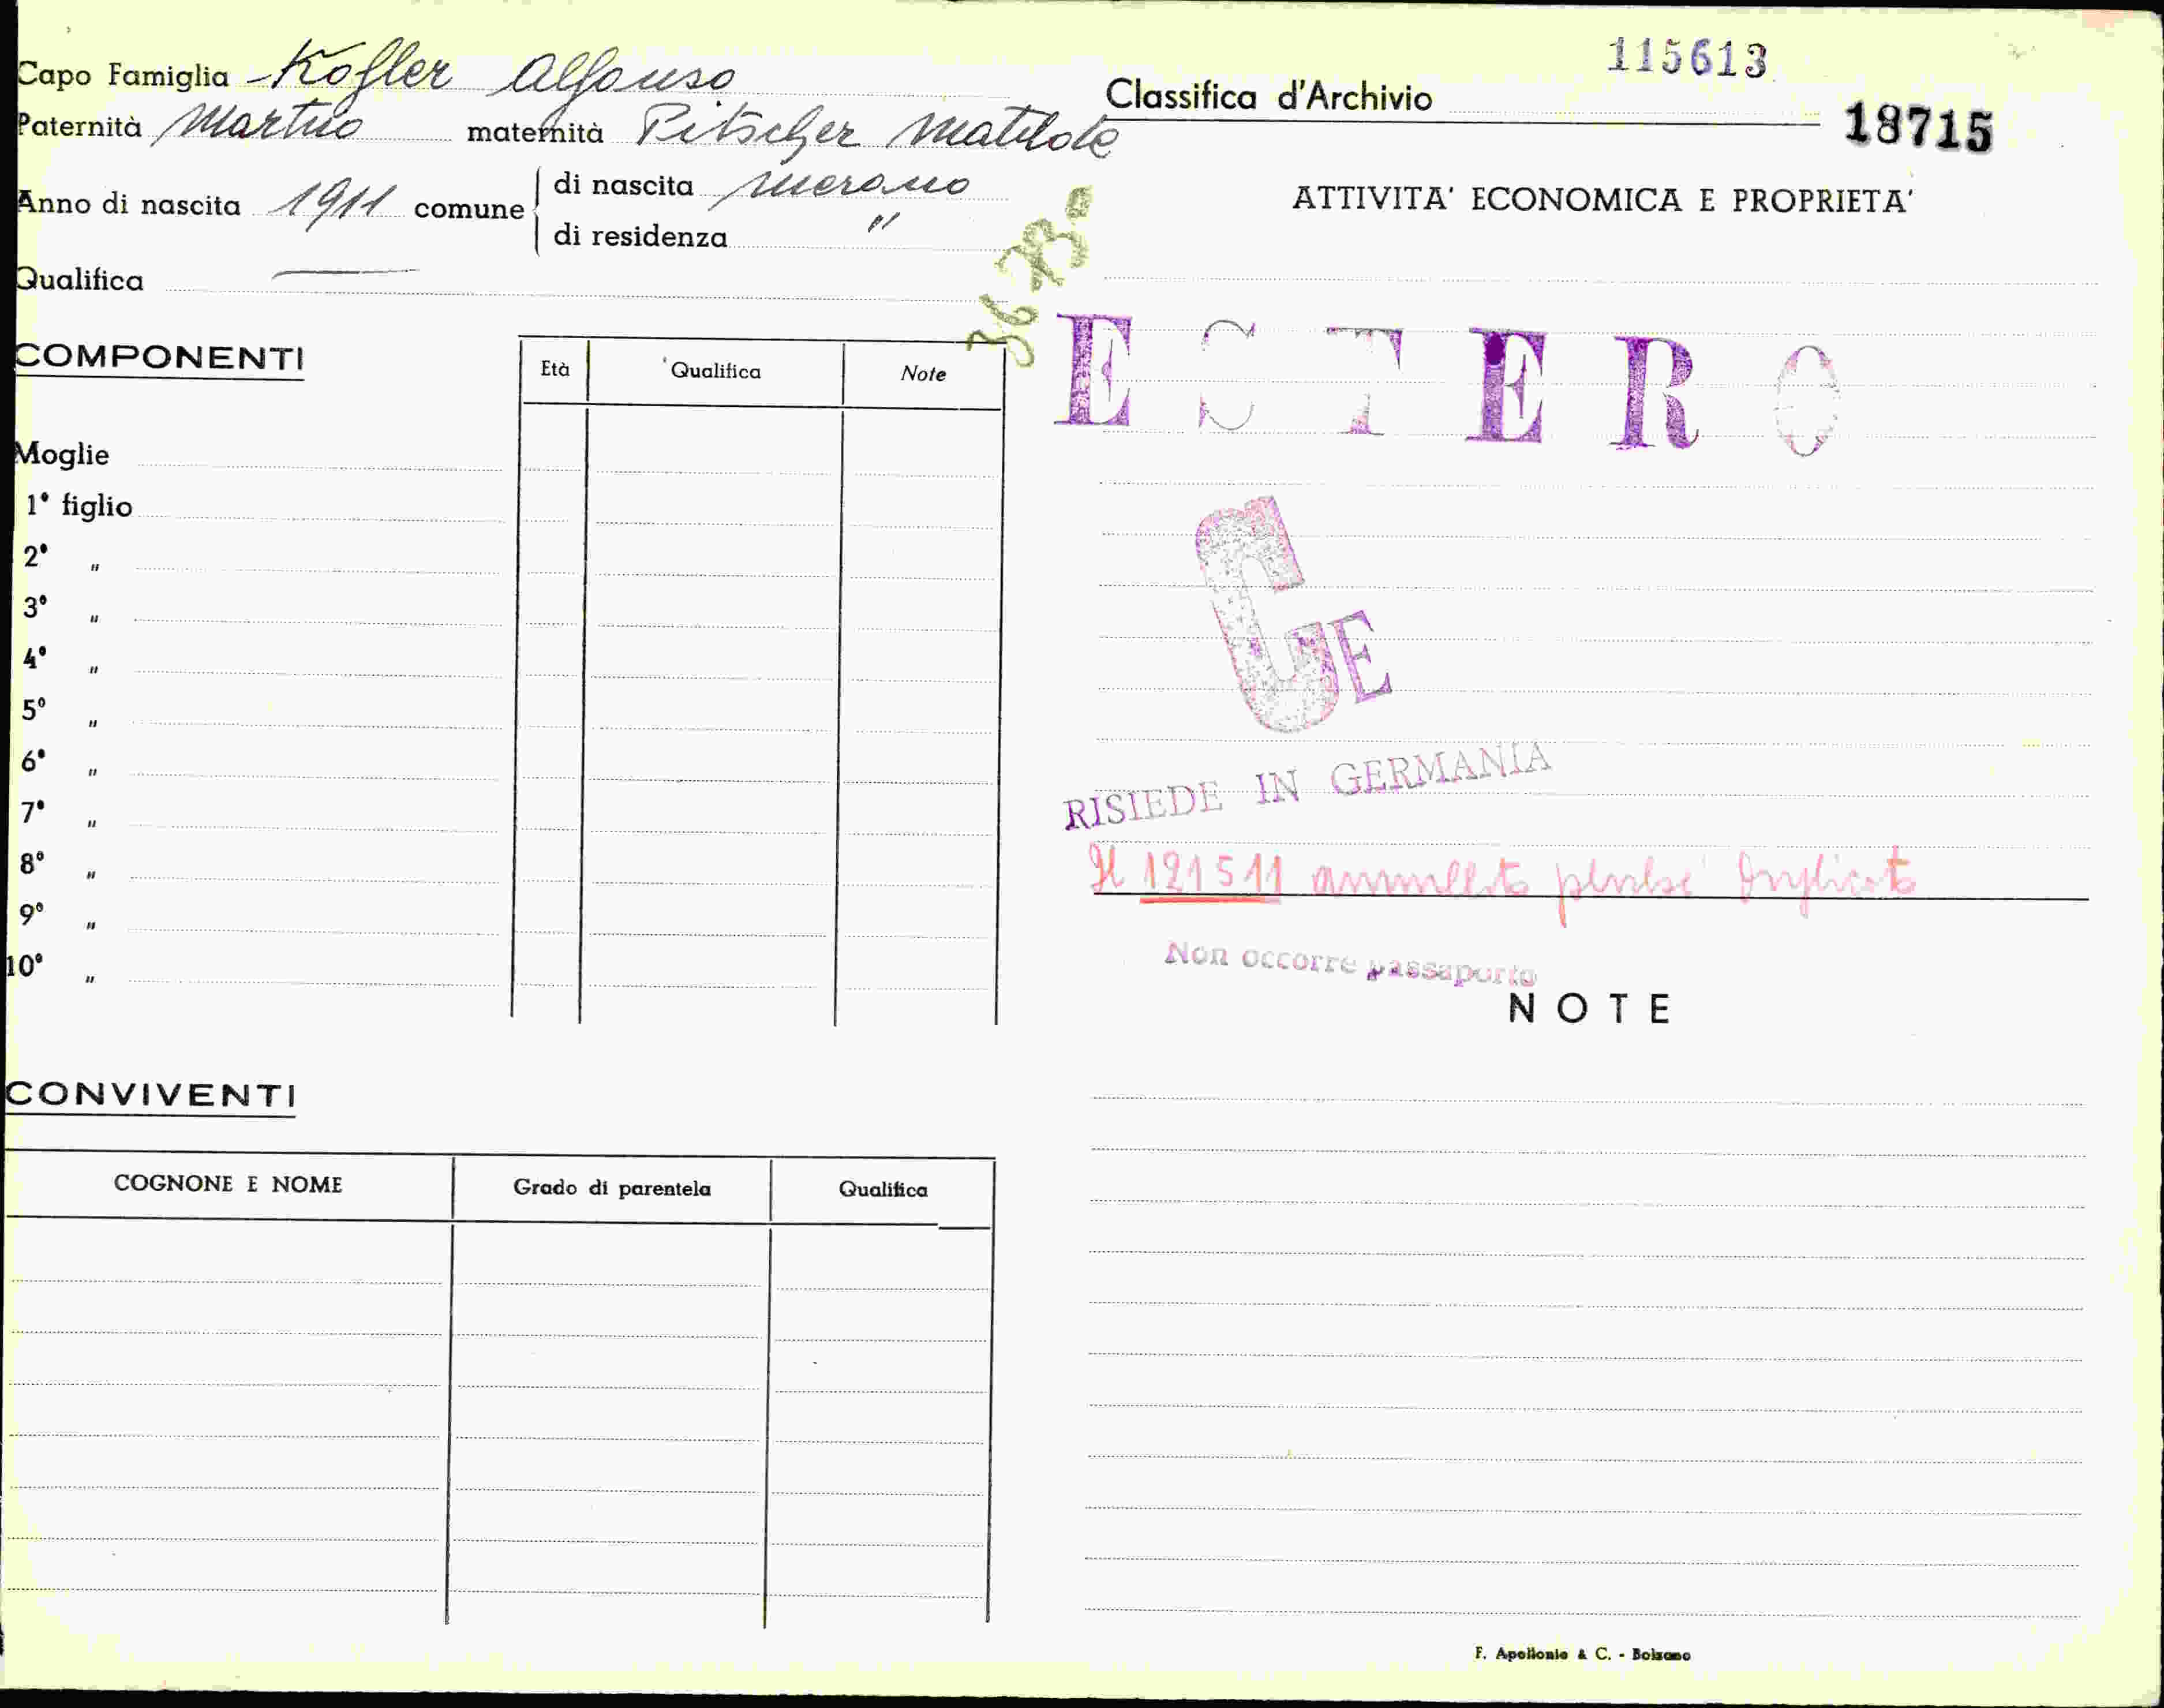 Capo Famiglia Kofler Alfonso
Paternità Martino maternità Pitscher Matilde
Anno di nascita 1911 comune di nascita Merano
di residenza "
Qualifica —
COMPONENTI
Età Qualifica Note
Moglie
1° figlio
2° "
3° "
4° "
5° "
6° "
7° "
8° "
9° "
10° "
CONVIVENTI
COGNONE E NOME Grado di parentela Qualifica
115613
Classifica d'Archivio
18715
ATTIVITA' ECONOMICA E PROPRIETA'
ESTERO
G E
RISIEDE IN GERMANIA
Il 121511 annullato perchè duplicato
Non occorre passaporto
NOTE
F. Apollonio & C. - Bolzano